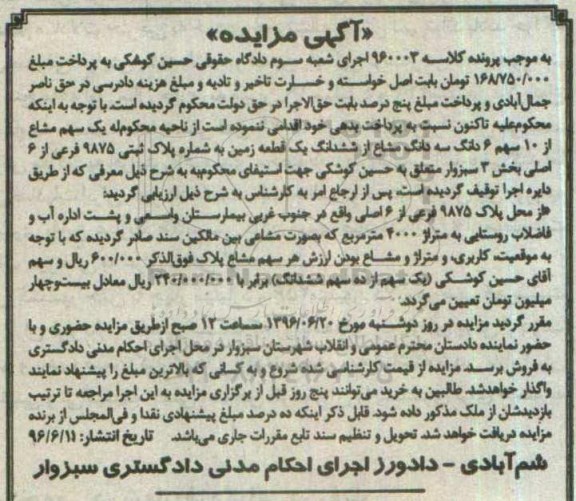 «آگهی مزایده»
به موجب پرونده کلاسه ۹۶۰۰۰۳ اجرای شعبه سوم دادگاه حقوقی حسین کوشکی به پرداخت مبلغ
۱۶۸/۷۵۰/۰۰۰ تومان بابت اصل خواسته و خسارت تاخیر و تادیه و مبلغ هزینه دادرسی در حق ناصر
جمال‌آبادی و پرداخت مبلغ پنج درصد بابت حق‌الاجرا در حق دولت محکوم گردیده است، با توجه به اینکه
محکوم‌علیه تاکنون نسبت به پرداخت بدهی خود اقدامی ننموده است از ناحیه محکوم‌له یک سهم مشاع
از ۱۰ سهم ۶ دانگ سه دانگ مشاع از ششدانگ یک قطعه زمین به شماره پلاک ثبتی ۹۸۷۵ فرعی از ۶
اصلی بخش ۳ سبزوار متعلق به حسین کوشکی جهت استیفای محکوم‌به به شرح ذیل معرفی که از طریق
دایره اجرا توقیف گردیده است، پس از ارجاع امر به کارشناس به شرح ذیل ارزیابی گردید:
«از محل پلاک ۹۸۷۵ فرعی از ۶ اصلی واقع در جنوب غربی بیمارستان واسعی و پشت اداره آب و
فاضلاب روستایی به متراژ ۴۰۰۰ مترمربع که بصورت مشاعی بین مالکین سند صادر گردیده که با توجه
به موقعیت، کاربری، و متراژ و مشاع بودن ارزش هر سهم مشاع پلاک فوق‌الذکر ۶۰۰/۰۰۰ ریال و سهم
آقای حسین کوشکی (یک سهم از ده سهم ششدانگ) برابر با ۲۴۰/۰۰۰/۰۰۰ ریال معادل بیست‌وچهار
میلیون تومان تعیین می‌گردد.
مقرر گردید مزایده در روز دوشنبه مورخ ۱۳۹۶/۰۶/۲۰ ساعت ۱۲ صبح ازطریق مزایده حضوری و با
حضور نماینده دادستان محترم عمومی و انقلاب شهرستان سبزوار در محل اجرای احکام مدنی دادگستری
به فروش برسد. مزایده از قیمت کارشناسی شده شروع و به کسانی که بالاترین مبلغ را پیشنهاد نمایند
واگذار خواهدشد. طالبین به خرید می‌توانند پنج روز قبل از برگزاری مزایده به این اجرا مراجعه تا ترتیب
بازدیدشان از ملک مذکور داده شود. قابل ذکر اینکه ده درصد مبلغ پیشنهادی نقدا و فی‌المجلس از برنده
مزایده دریافت خواهد شد. تحویل و تنظیم سند تابع مقررات جاری می‌باشد. تاریخ انتشار: ۹۶/۶/۱۱
شم‌آبادی – دادورز اجرای احکام مدنی دادگستری سبزوار